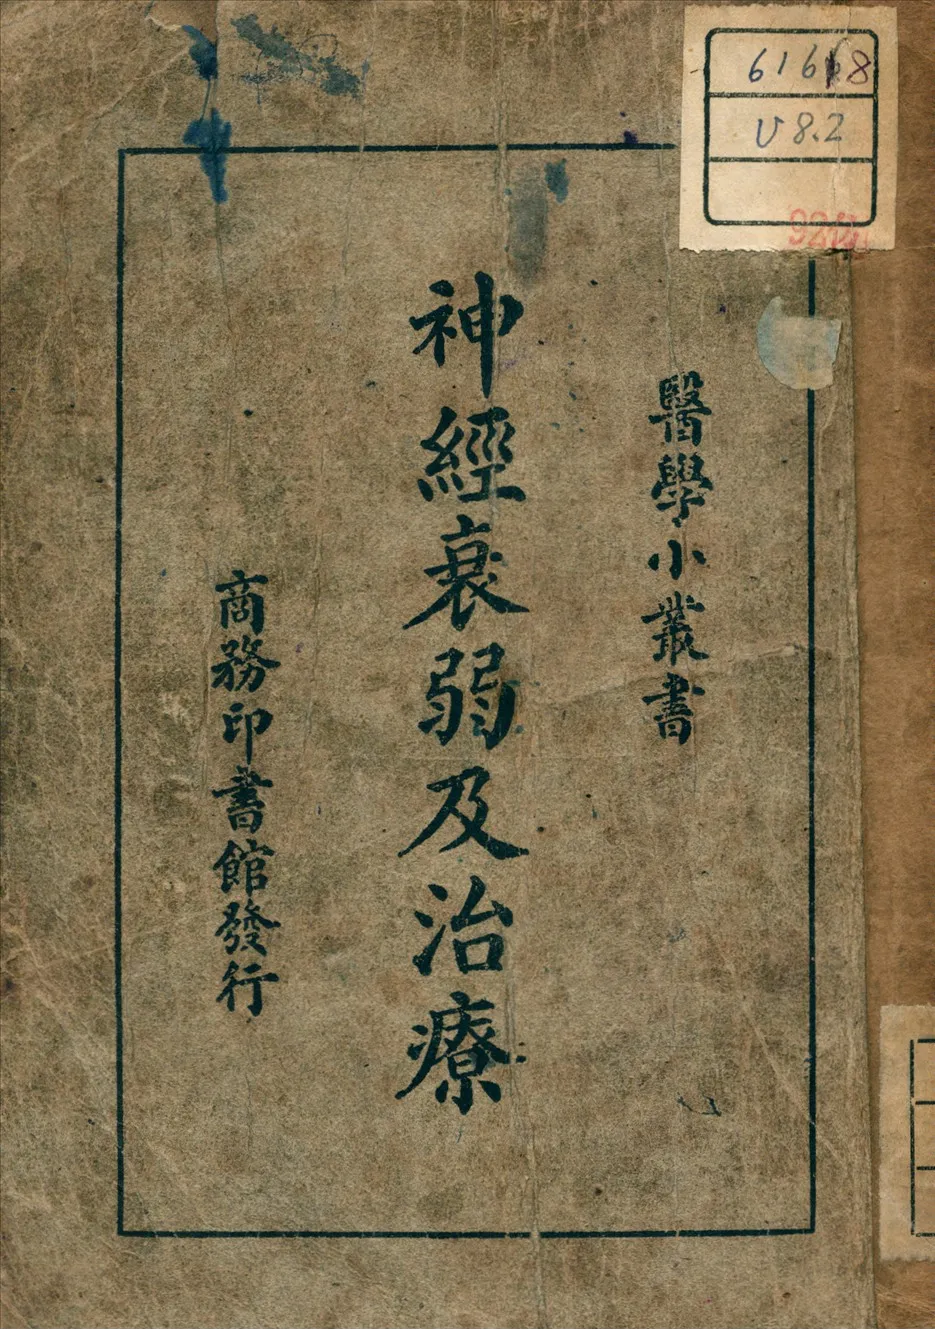 醫學小叢書
神經衰弱及治療
商務印書館發行
V 8.2